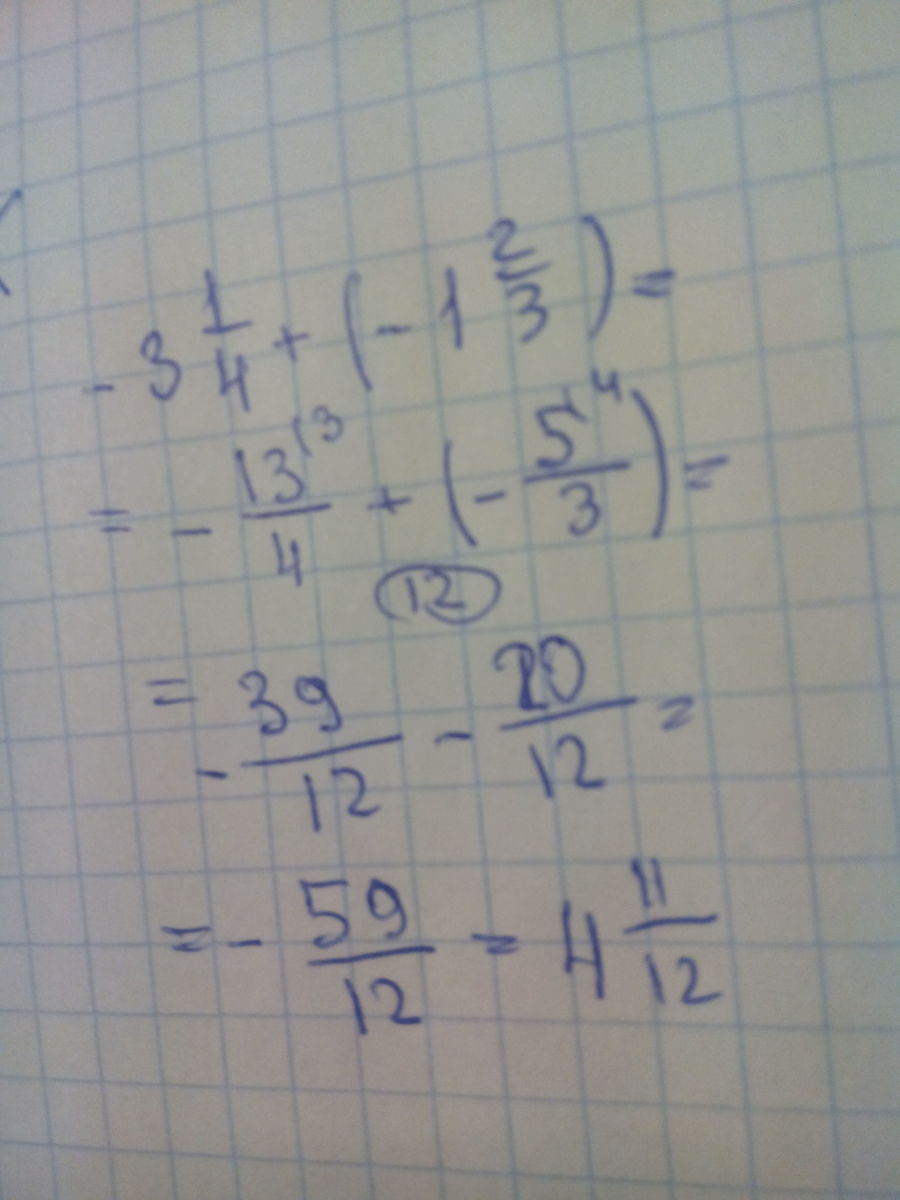 - 3 1/4 + (- 1 2/3) =
= - 13/4 ⁽³ + (- 5/3 ⁽⁴) =
12
= - 39/12 - 20/12 =
= - 59/12 = 4 11/12